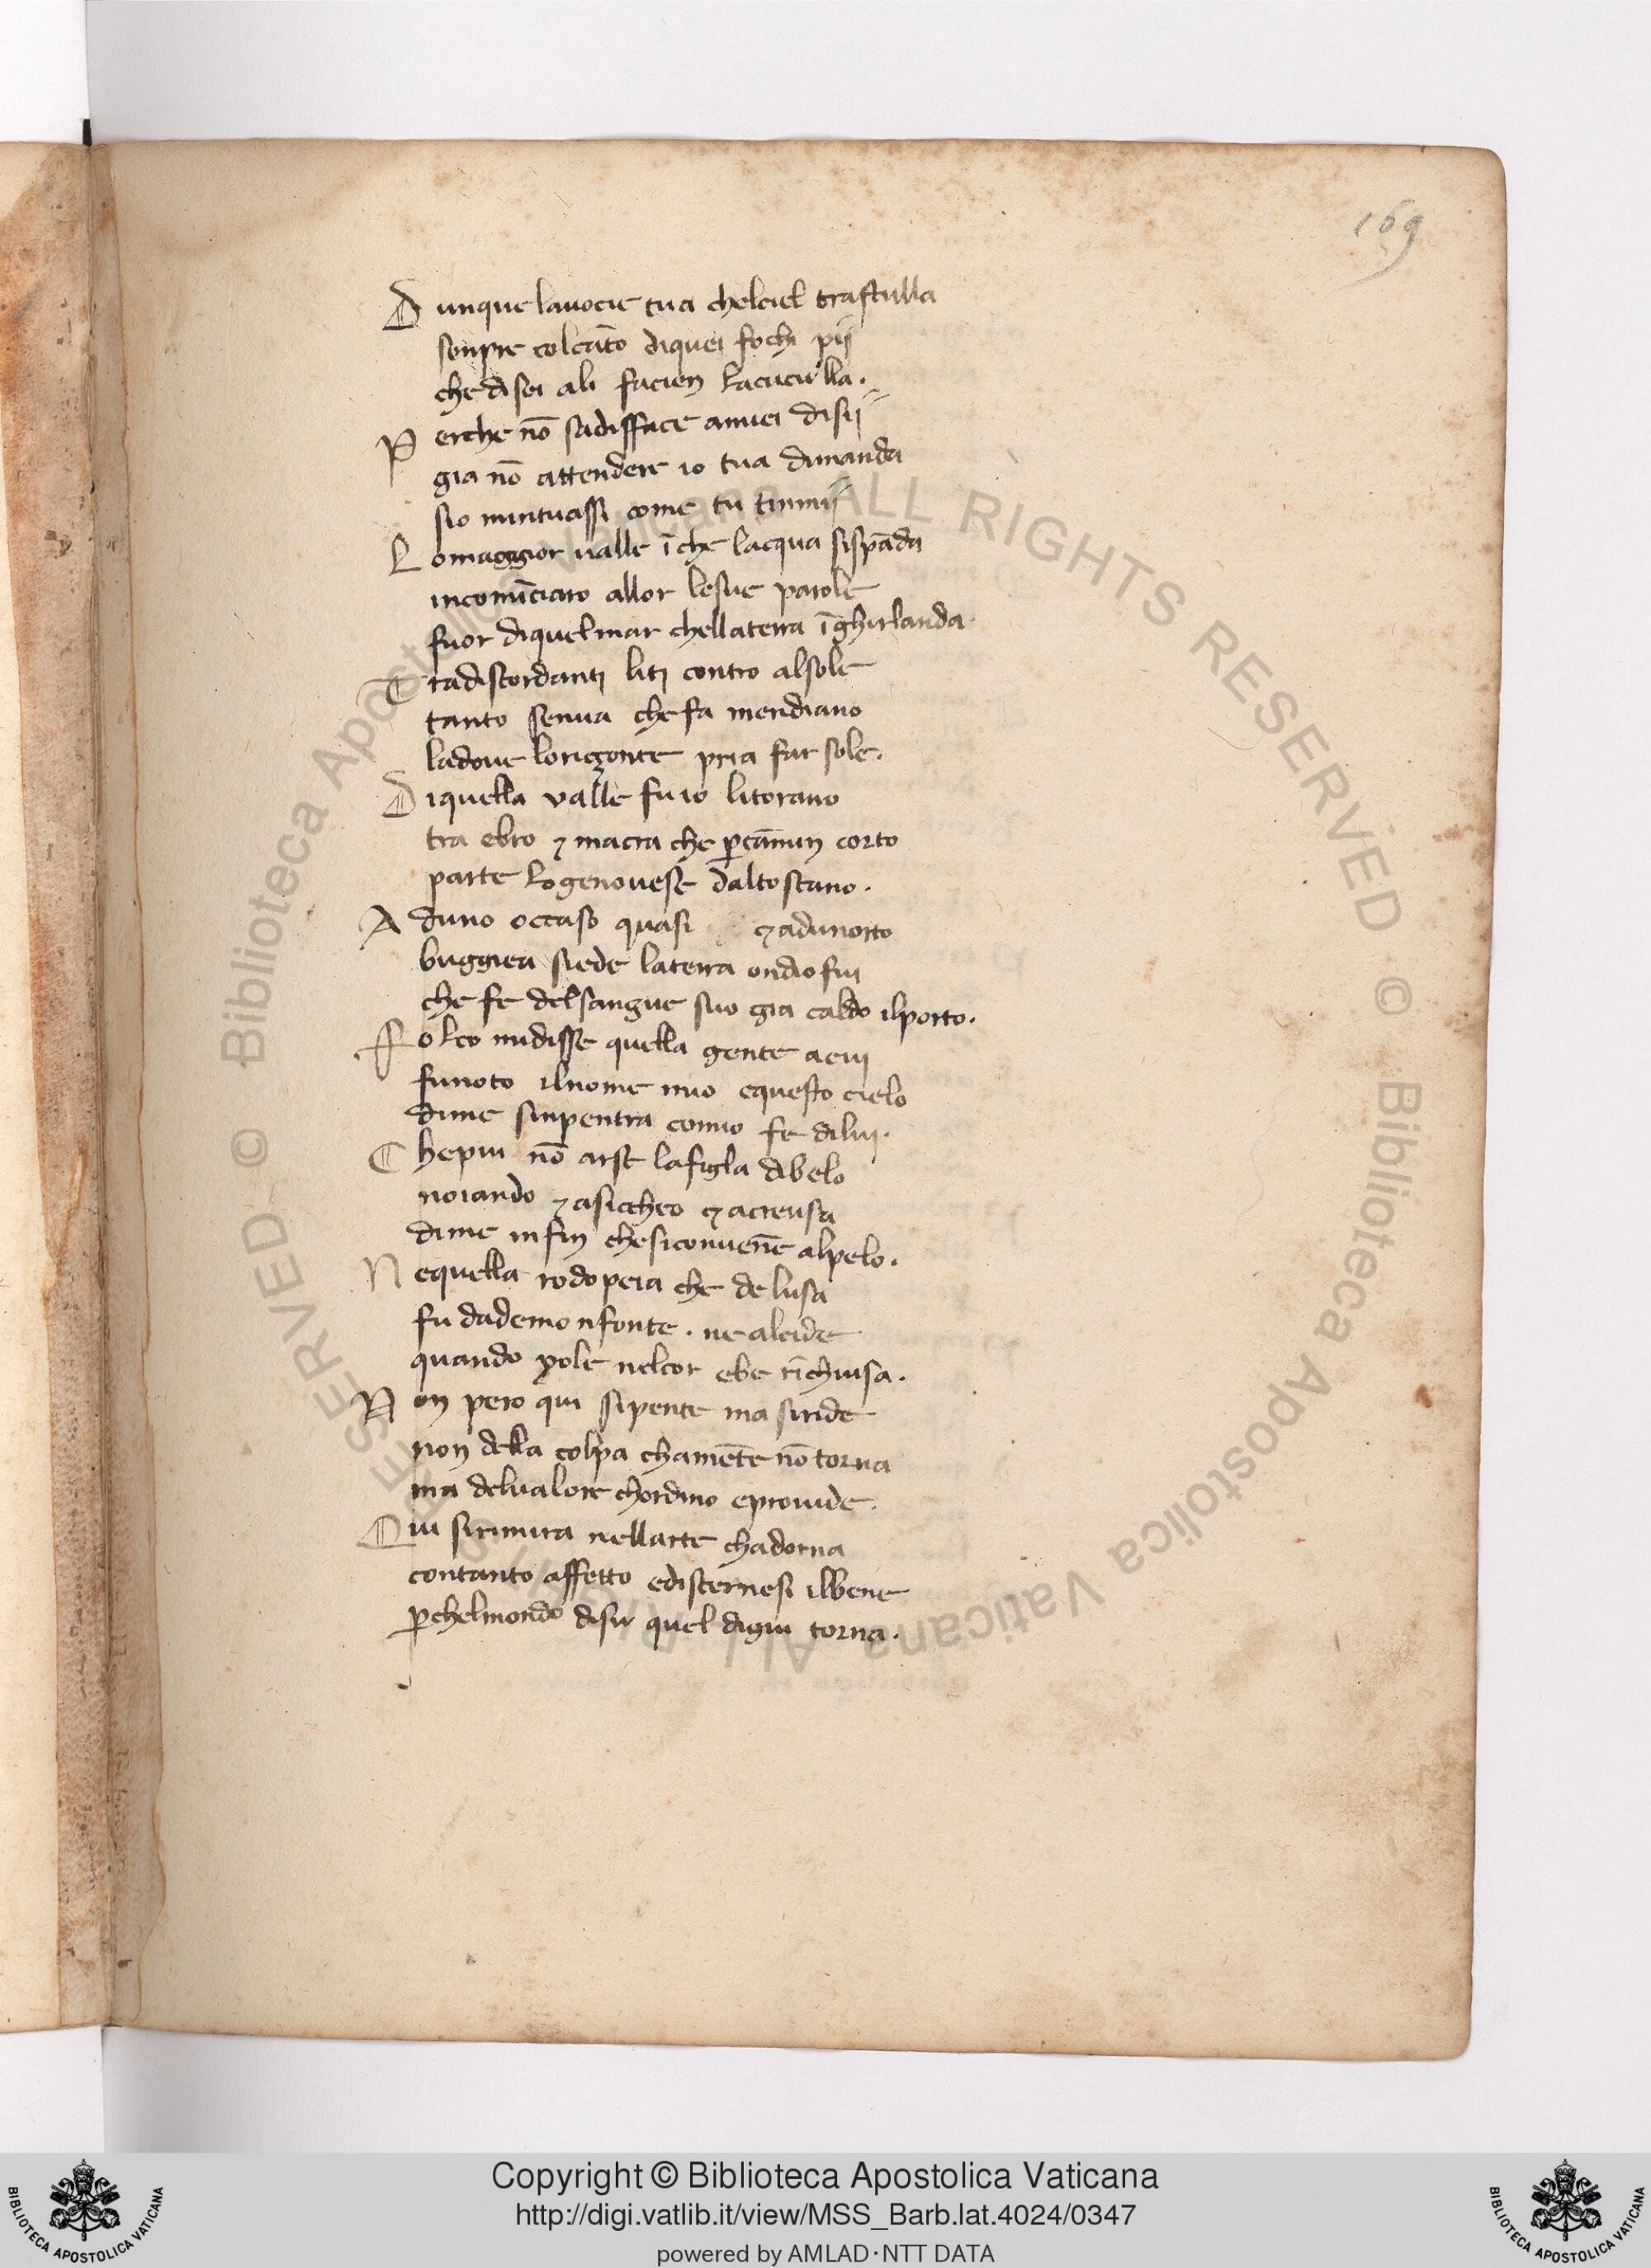 169
Dunque lauocie tua chelciel trastulla
senpre colcāto diquei fochi pij
che disei ali facien lacuculla.
Perche nō sadisffacie amiei disij
gia nō attendere io tua dimanda
sio mintuassi come tu tinmij
Lomaggior ualle īche lacqua sispāda
incomīciaro allor lesue parole
fuor diquelmar chellaterra īghirlanda
Tradiscordanti liti contro alsole
tanto senua che fa meridiano
ladoue lorizonte pria far sole.
Diquella valle fu io litorano
tra ebro ⁊ macra che p̄ cāmin corto
parte logenouese daltoscano.
Aduno occaso quasi ⁊ adunorto
buggiea siede laterra ondio fui
che fe delsangue suo gia caldo ilporto.
Folco midisse quella gente acui
funoto ilnome mio equesto cielo
dime sinpentra comio fe dilui.
Chepiu nō arse lafigla dibelo
noiando ⁊ asiccheo ⁊ acreusa
dime infin chesiconuenē alpelo.
Nequella rodopeia che delusa
fu dademonfonte. ne alcide
quando yole nelcor ebe rīchiusa.
Non pero qui sipente ma siride
non della colpa chamēte nō torna
ma delualore chordino eprouide.
Qui sirimira nellarte chadorna
contanto affetto ediscernesi ilbene
p̄chelmondo disu quel digiu torna.
Copyright © Biblioteca Apostolica Vaticana
http://digi.vatlib.it/view/MSS_Barb.lat.4024/0347
powered by AMLAD·NTT DATA
BIBLIOTECA APOSTOLICA VATICANA
BIBLIOTECA APOSTOLICA VATICANA
© Biblioteca Apostolica Vaticana ALL RIGHTS RESERVED © Biblioteca Apostolica Vaticana ALL RIGHTS RESERVED